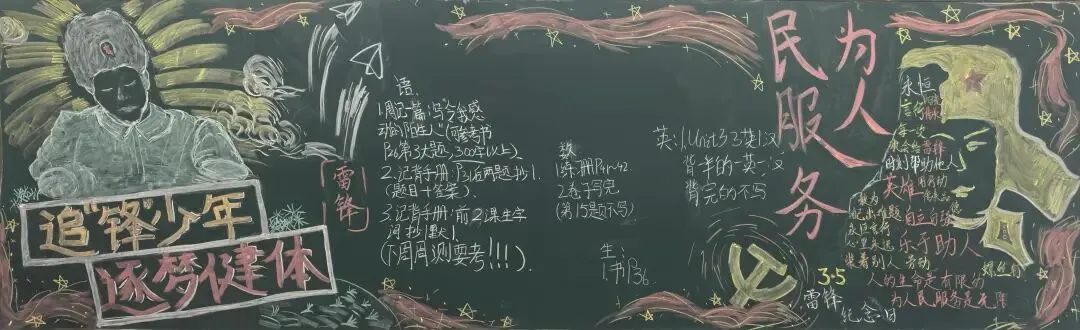 追“锋”少年
逐梦健体
雷锋
语:
1.周记一篇:写“令我感
动的陌生人”(可参考书
P6第3大题,300字以上).
2.记背手册:P3近两题抄1.
(题目+答案).
3.记背手册:前2课生字
词抄1默1.
(下周周测要考!!!).
数
2.卷子写完
(第15题不写)
生:
1.书P36
英:1.Unit3 3英1汉
背半的一英一汉
背完的不写
为人
民服务
永恒
每一次
时刻帮助他人
英雄
自立自强
乐于助人
螺丝钉
人的生命是有限的
为人民服务是无限
3·5
雷锋
纪念日